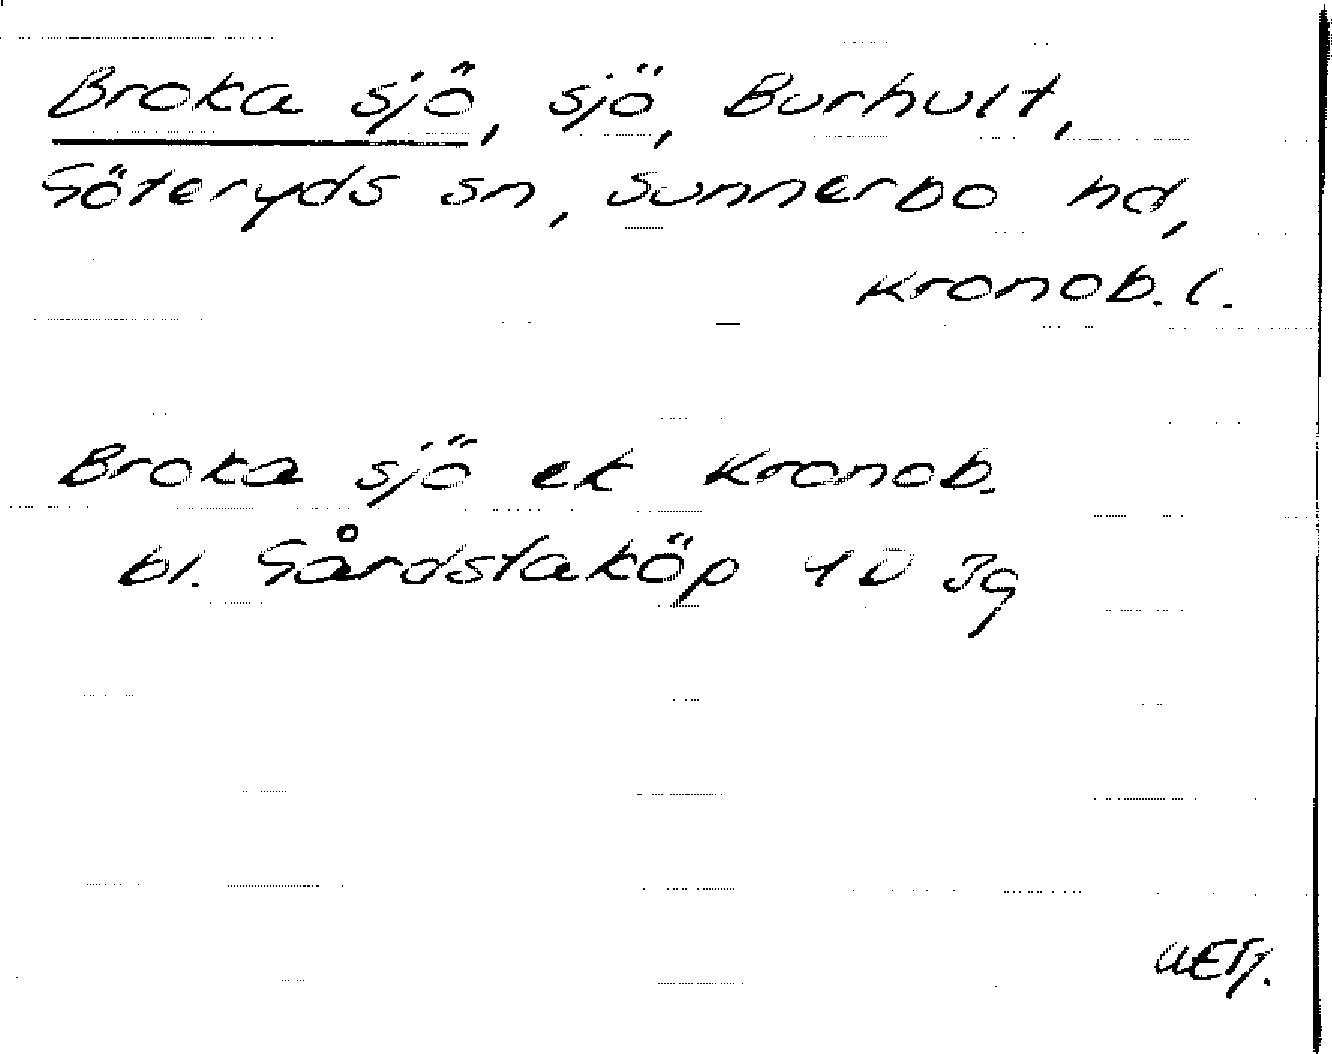 Broka sjö, sjö, Burhult,
Göteryds sn, Sunnerbo hd,
Kronob. l.
Broka sjö ek Kronob.
bl. Gårdstaköp 10 Jg